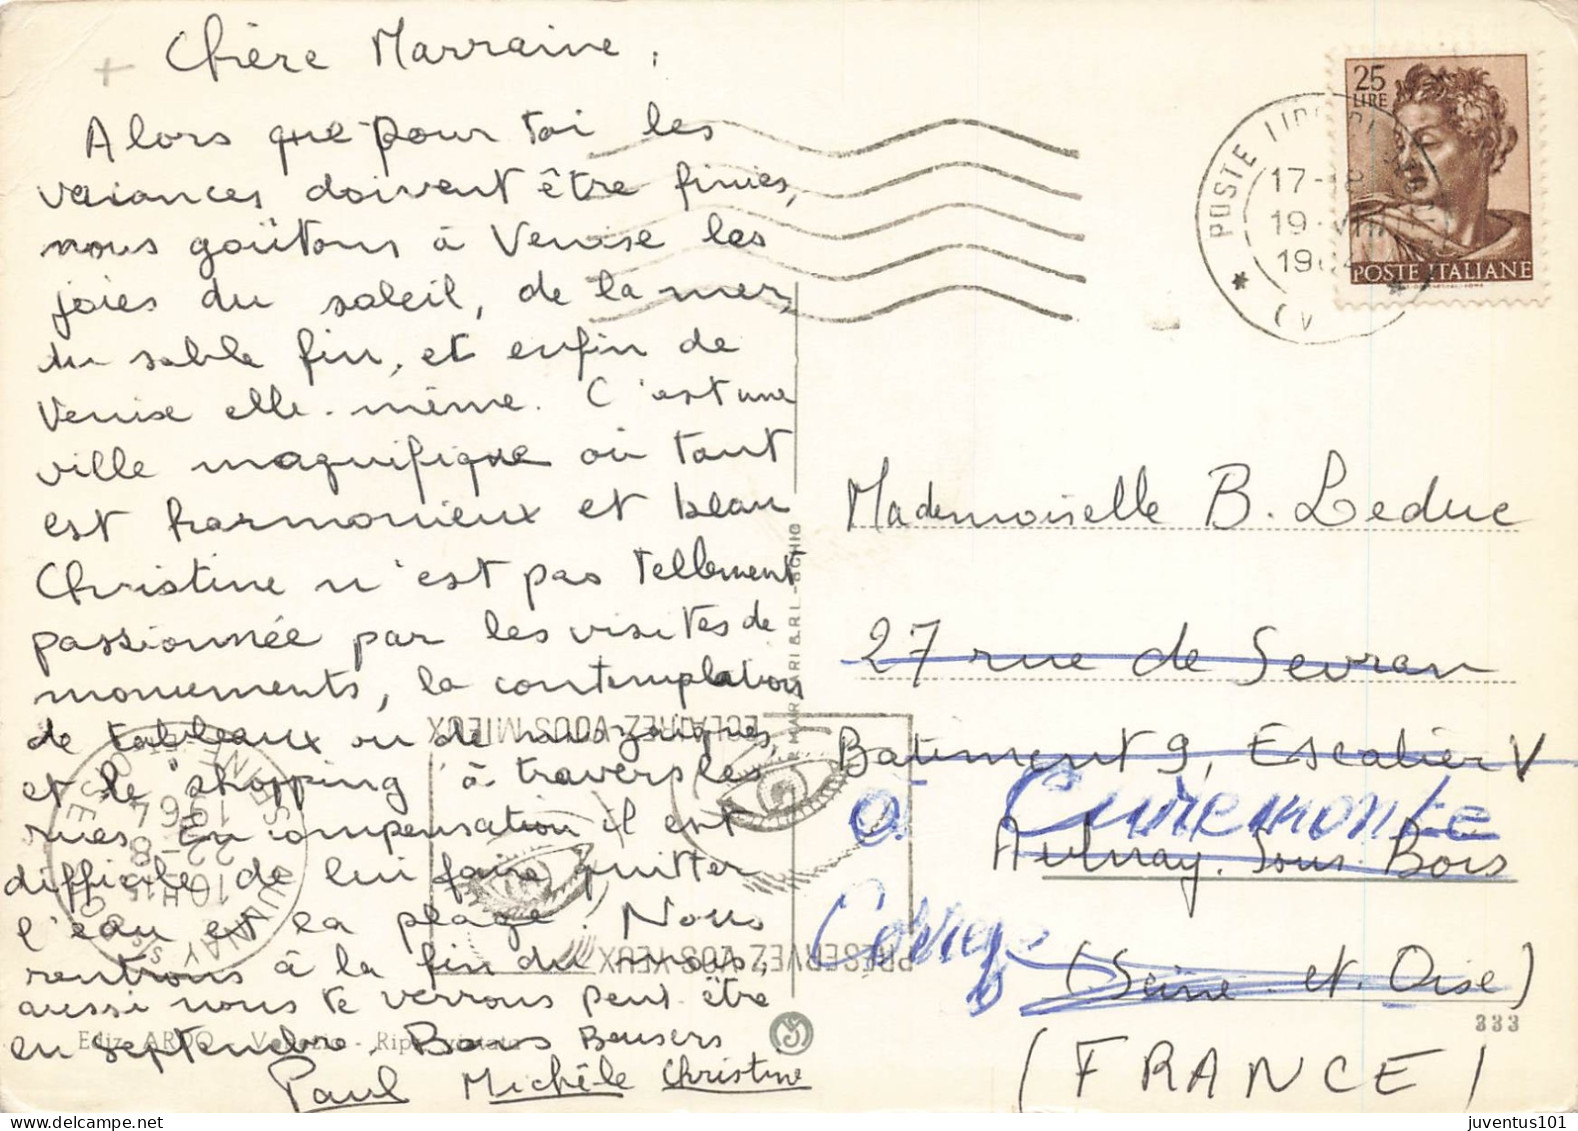 Chère Marraine,
Alors que pour toi les
vacances doivent être finies,
nous goûtons à Venise les
joies du soleil, de la mer,
du sable fin, et enfin de
Venise elle-même. C'est une
ville magnifique où tout
est harmonieux et beau
Christine n'est pas tellement
passionnée par les visites de
monuments, la contemplation
de tableaux ou de mozaïques,
et le "shopping" à travers les
rues. En compensation il est
difficile de lui faire quitter
l'eau et la plage. Nous
rentrons à la fin du mois,
aussi nous te verrons peut-être
en septembre. Bons Baisers
Paul Michèle Christine
25
LIRE
POSTE ITALIANE
POSTE
17-18
19-VIII
1964
Mademoiselle B. Leduc
27 rue de Sevran
Batiment 9, Escalier V
Curemonte
Aulnay-sous-Bois
Corrèze
(Seine-et-Oise)
(FRANCE)
333
ECLAIREZ-VOUS MIEUX
PRESERVEZ VOS YEUX
AULNAY SS BOIS
10H15
22-8
1964
SEINE-ET-OISE
Ediz. ARDO - Venezia - Rip. vietata
juventus101